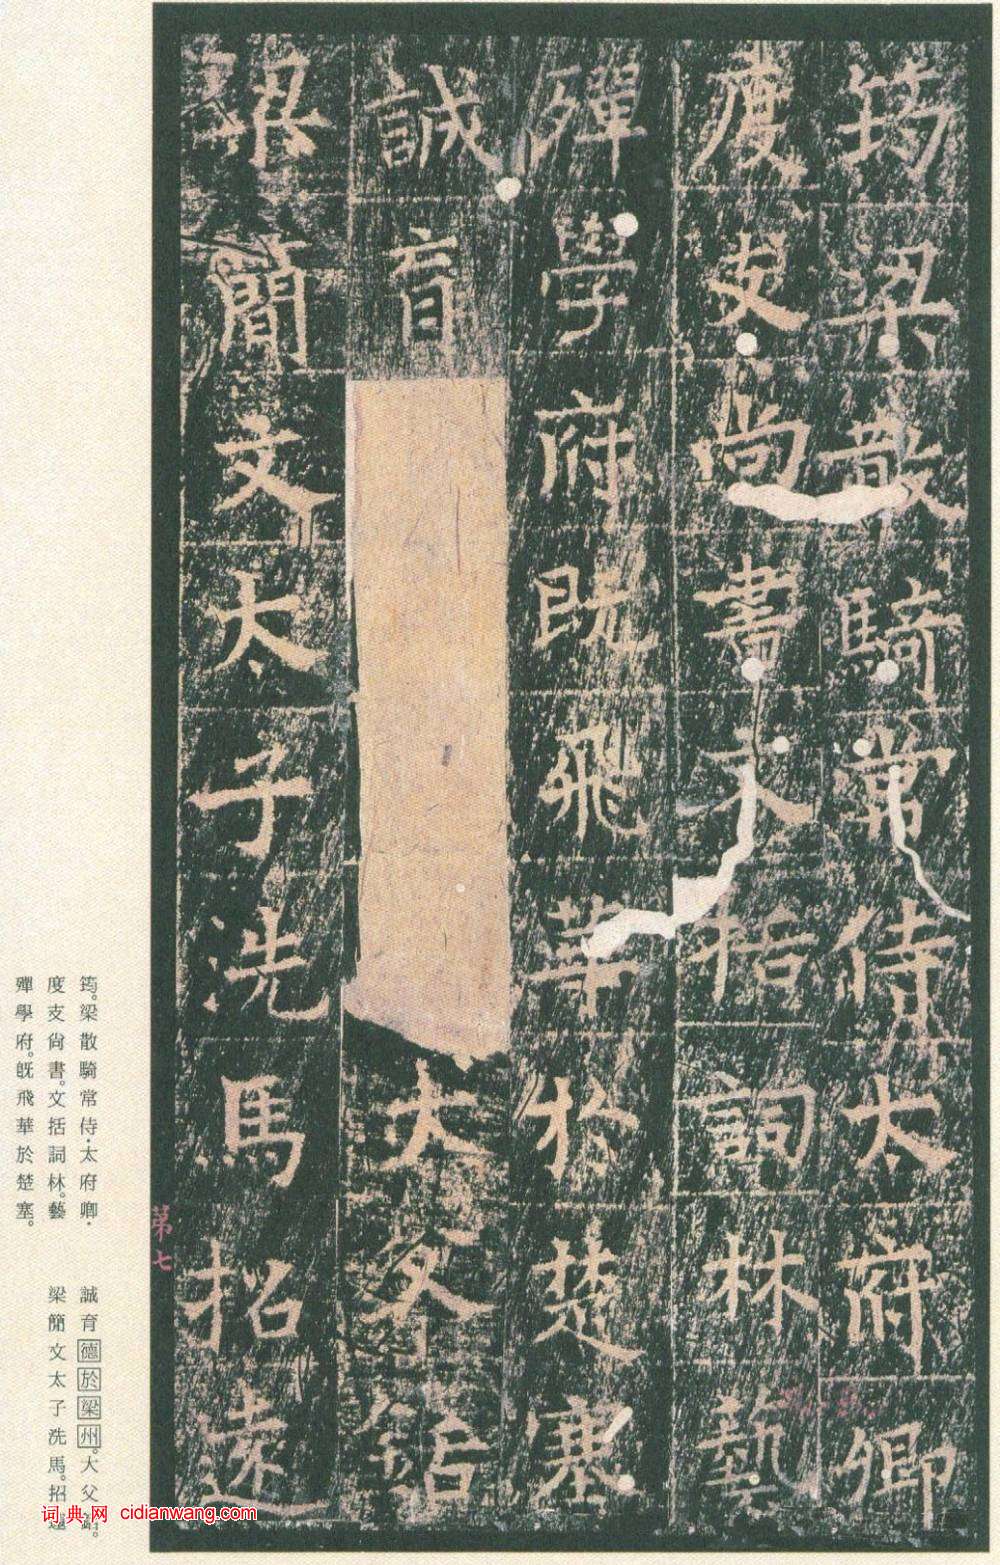 筠梁散騎常侍太府卿
度支尚書文括詞林藝
殫學府既飛華於楚塞
誠育大父鍇
梁簡文太子洗馬招遠
第七
筠。梁散騎常侍·太府卿·
度支尙書。文括詞林。藝
殫學府。旣飛華於楚塞。
誠育德於梁州。大父
梁簡文太子洗馬。招遠
词典网 cidianwang.com